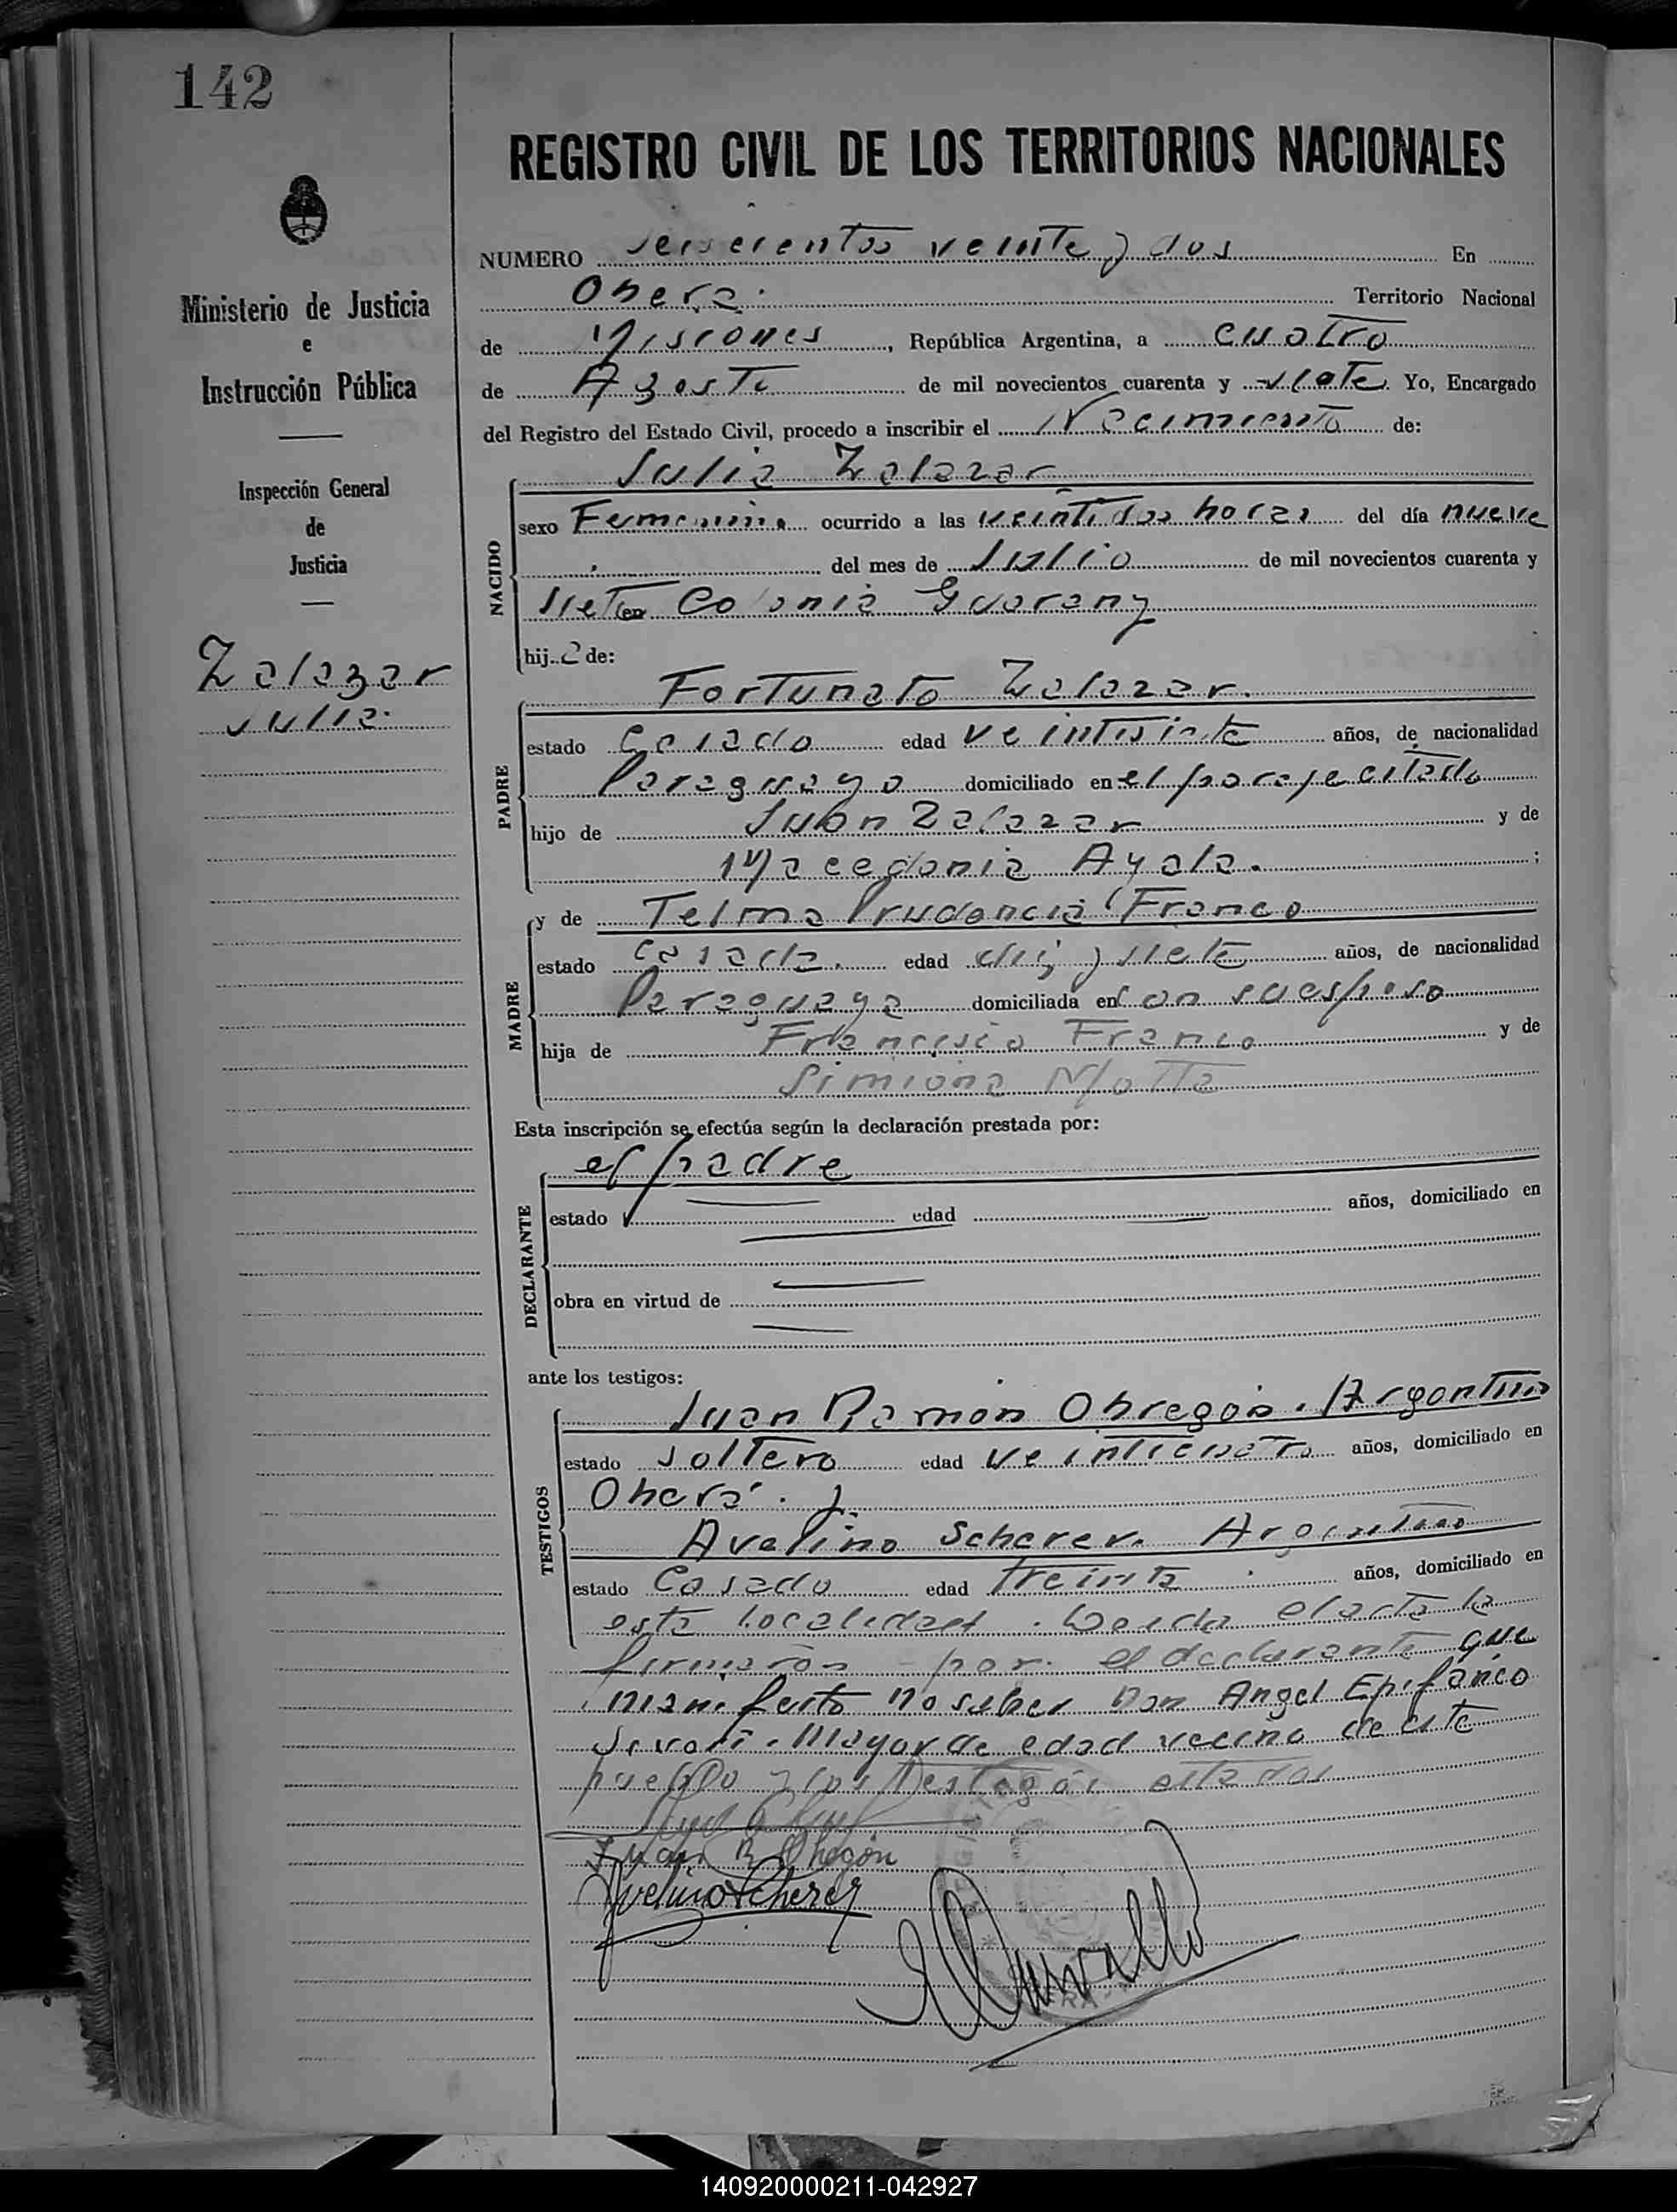 142
REGISTRO CIVIL DE LOS TERRITORIOS NACIONALES
Ministerio de Justicia
e
Instrucción Pública
Inspección General
de
Justicia
Zalazar
Julia.
NUMERO seiscientos veinte y dos En
Oberá. Territorio Nacional
de Misiones, República Argentina, a cuatro
de Agosto de mil novecientos cuarenta y siete. Yo, Encargado
del Registro del Estado Civil, procedo a inscribir el Nacimiento de:
Julia Zalazar
NACIDO
sexo Femenino ocurrido a las veintidos horas del día nueve
del mes de Julio de mil novecientos cuarenta y
siete en Colonia Guarany
hija de:
Fortunato Zalazar.
PADRE
estado Casado edad veintisiete años, de nacionalidad
Paraguayo domiciliado en el paraje citado
hijo de Juan Zalazar y de
Macedonia Ayala. ;
y de Telma Prudencia Franco
MADRE
estado casada. edad diez y siete años, de nacionalidad
Paraguaya domiciliada en con su esposo
hija de Francisco Franco y de
Simiona Motta
Esta inscripción se efectúa según la declaración prestada por:
el padre
DECLARANTE
estado edad años, domiciliado en
obra en virtud de
ante los testigos:
Juan Ramón Obregón. Argentino
TESTIGOS
estado soltero edad veinticuatro años, domiciliado en
Oberá. y
Avelino Scherer. Argentino
estado Casado edad treinta años, domiciliado en
esta localidad. Leida el acta la
firmaron por el declarante que
manifesto no saber Don Angel Epifanio
mayor de edad vecino de este
pueblo y los testigos citados
Juan R Obregón
Avelino Scherer
140920000211-042927